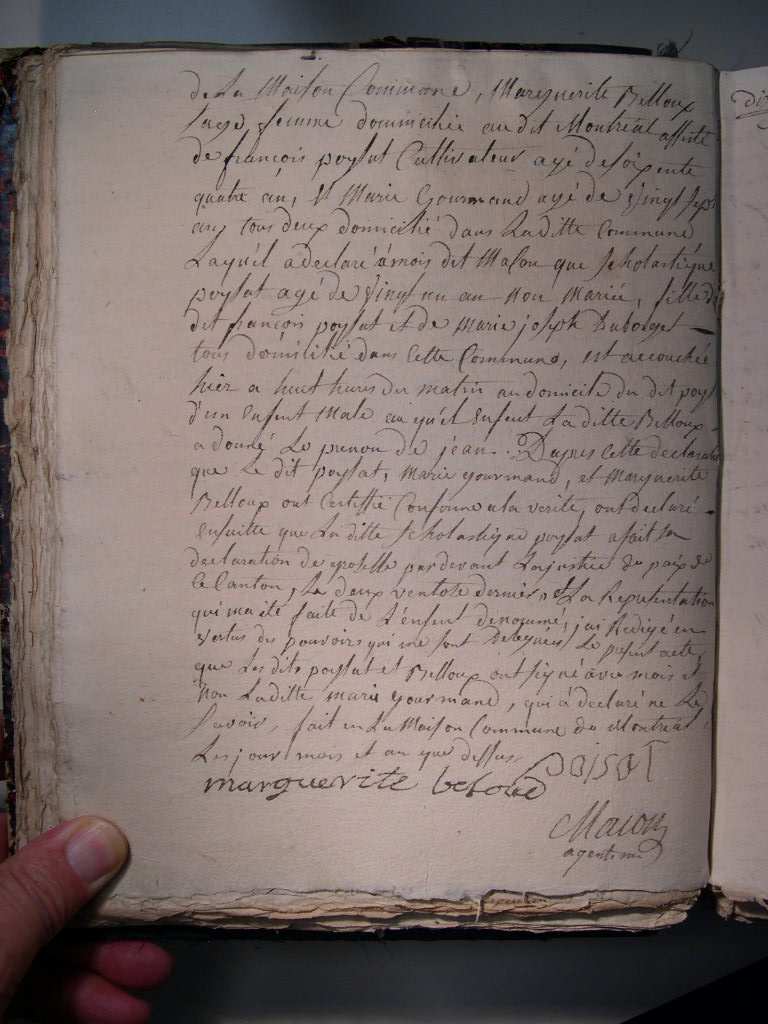 de La Maison Commune, Marguerite Belloux
sage femme domiciliée au dit Montréal assisté
de françois poysat Cultivateur agé de soixente
quatre an, et Marie Gourmand agé de vingt sept
ans tous deux domicilié dans Laditte Commune
Laquél a declaré à mois dit Macon que Scholastique
poysat agé de vingt un an non Mariée, fille du
dit françois poysat et de Marie joseph Duborget
tous domilié dans Cette Commune, est accouchée
hier a huit hures du matin au domicile du dit poysat
d'un Enfent Male au qu'él Enfent Laditte Belloux
a donné Le prenon de jean. Dapres Cette declaration
que Le dit poysat, Marie gourmand, et Marguerite
Belloux ont Certiffié Conforme a la verité, ont declaré
Ensuitte que Laditte Scholastique poysat a fait sa
declaration de groselle pardevant Lajustice de paix de
Ce Canton, Le deux ventose dernier, et La Representation
qui ma été faite de L'enfent denommé, jai Redigé en
vertus des pouvoirs qui me sont Delegués Le present acte,
que Les dits poysat et Belloux ont signé avec mois et
Non Laditte marie gourmand, qui à declaré ne Le
savoir, fait en La Maison Commune de Montreal
Les jour mois et an que dessus poisat
marguerite beloud
Macon
agent m